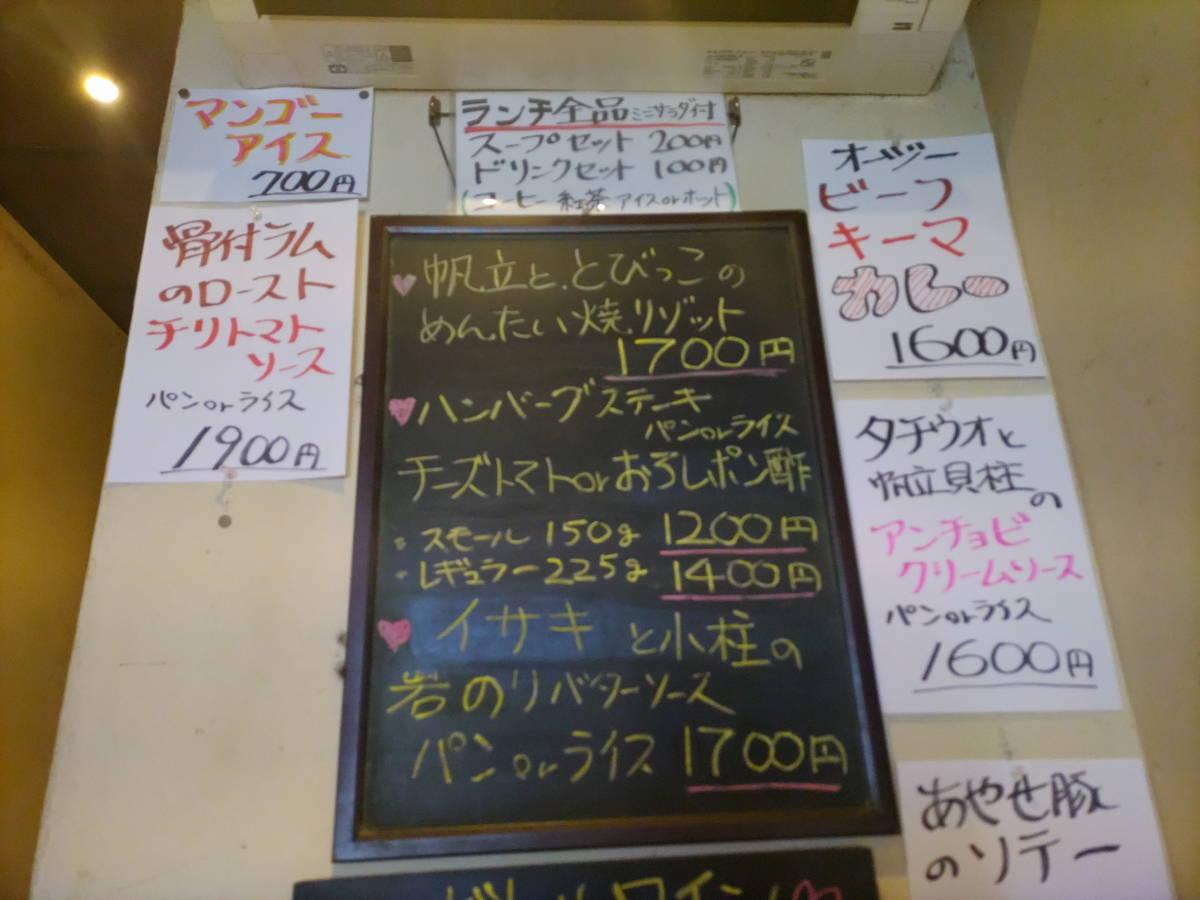 マンゴー
アイス
700円
骨付ラム
のロースト
チリトマト
ソース
パンorライス
1900円
ランチ全品ミニサラダ付
スープセット 200円
ドリンクセット 100円
(コーヒー 紅茶 アイスorホット)
帆立と、とびっこの
めんたい焼リゾット
1700円
ハンバーグステーキ
パンorライス
チーズトマトorおろしポン酢
スモール 150g 1200円
レギュラー 225g 1400円
イサキと小柱の
岩のりバターソース
パンorライス 1700円
オージー
ビーフ
キーマ
カレー
1600円
タチウオと
帆立貝柱の
アンチョビ
クリームソース
パンorライス
1600円
あやせ豚
のソテー